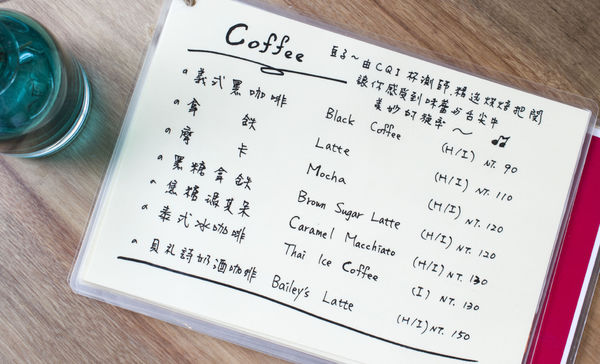 Coffee
豆子～由CQI杯測師.精選烘焙把關
讓你感受到味蕾与舌尖中
美妙的旋律～
義式黑咖啡 Black Coffee (H/I) NT. 90
拿鐵 Latte (H/I) NT. 110
摩卡 Mocha (H/I) NT. 120
黑糖拿鉄 Brown Sugar Latte (H/I) NT. 120
焦糖瑪其朵 Caramel Macchiato (H/I) NT. 130
泰式冰咖啡 Thai Ice Coffee (I) NT. 130
貝礼詩奶酒咖啡 Bailey's Latte (H/I) NT. 150